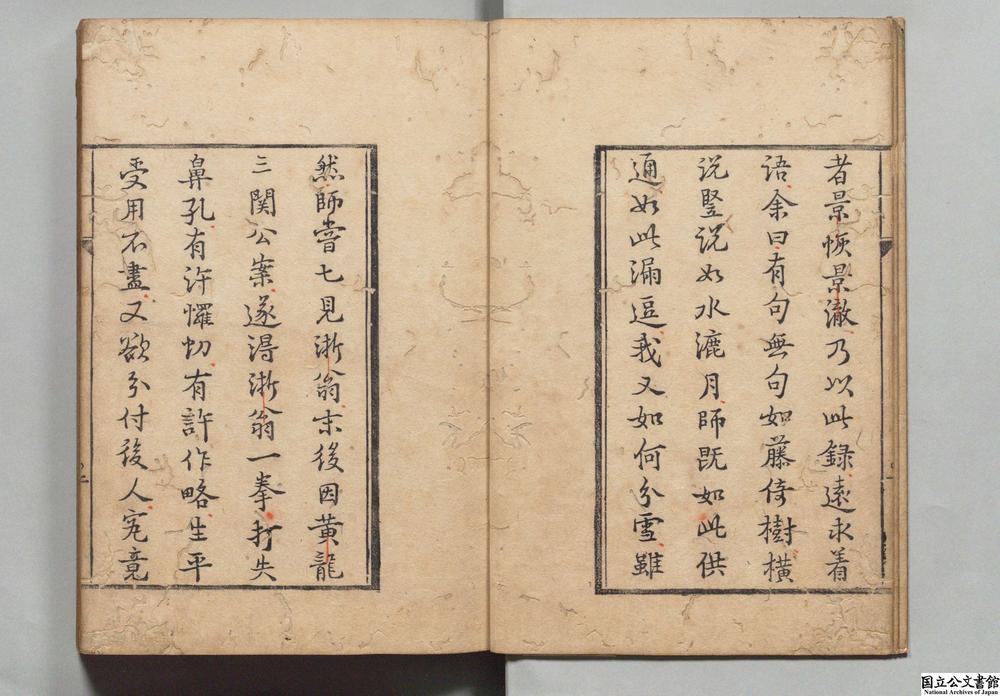 者景恢景澈乃以此録遠求着
语余曰有句無句如藤倚樹横
说竪说如水漉月師既如此供
通如此漏逗我又如何分雪雖
然師嘗七見浙翁末後因黄龍
三関公案遂得浙翁一拳打失
鼻孔有許懼㓛有許作略生平
受用不盡又欲分付後人究竟
国立公文書館
National Archives of Japan